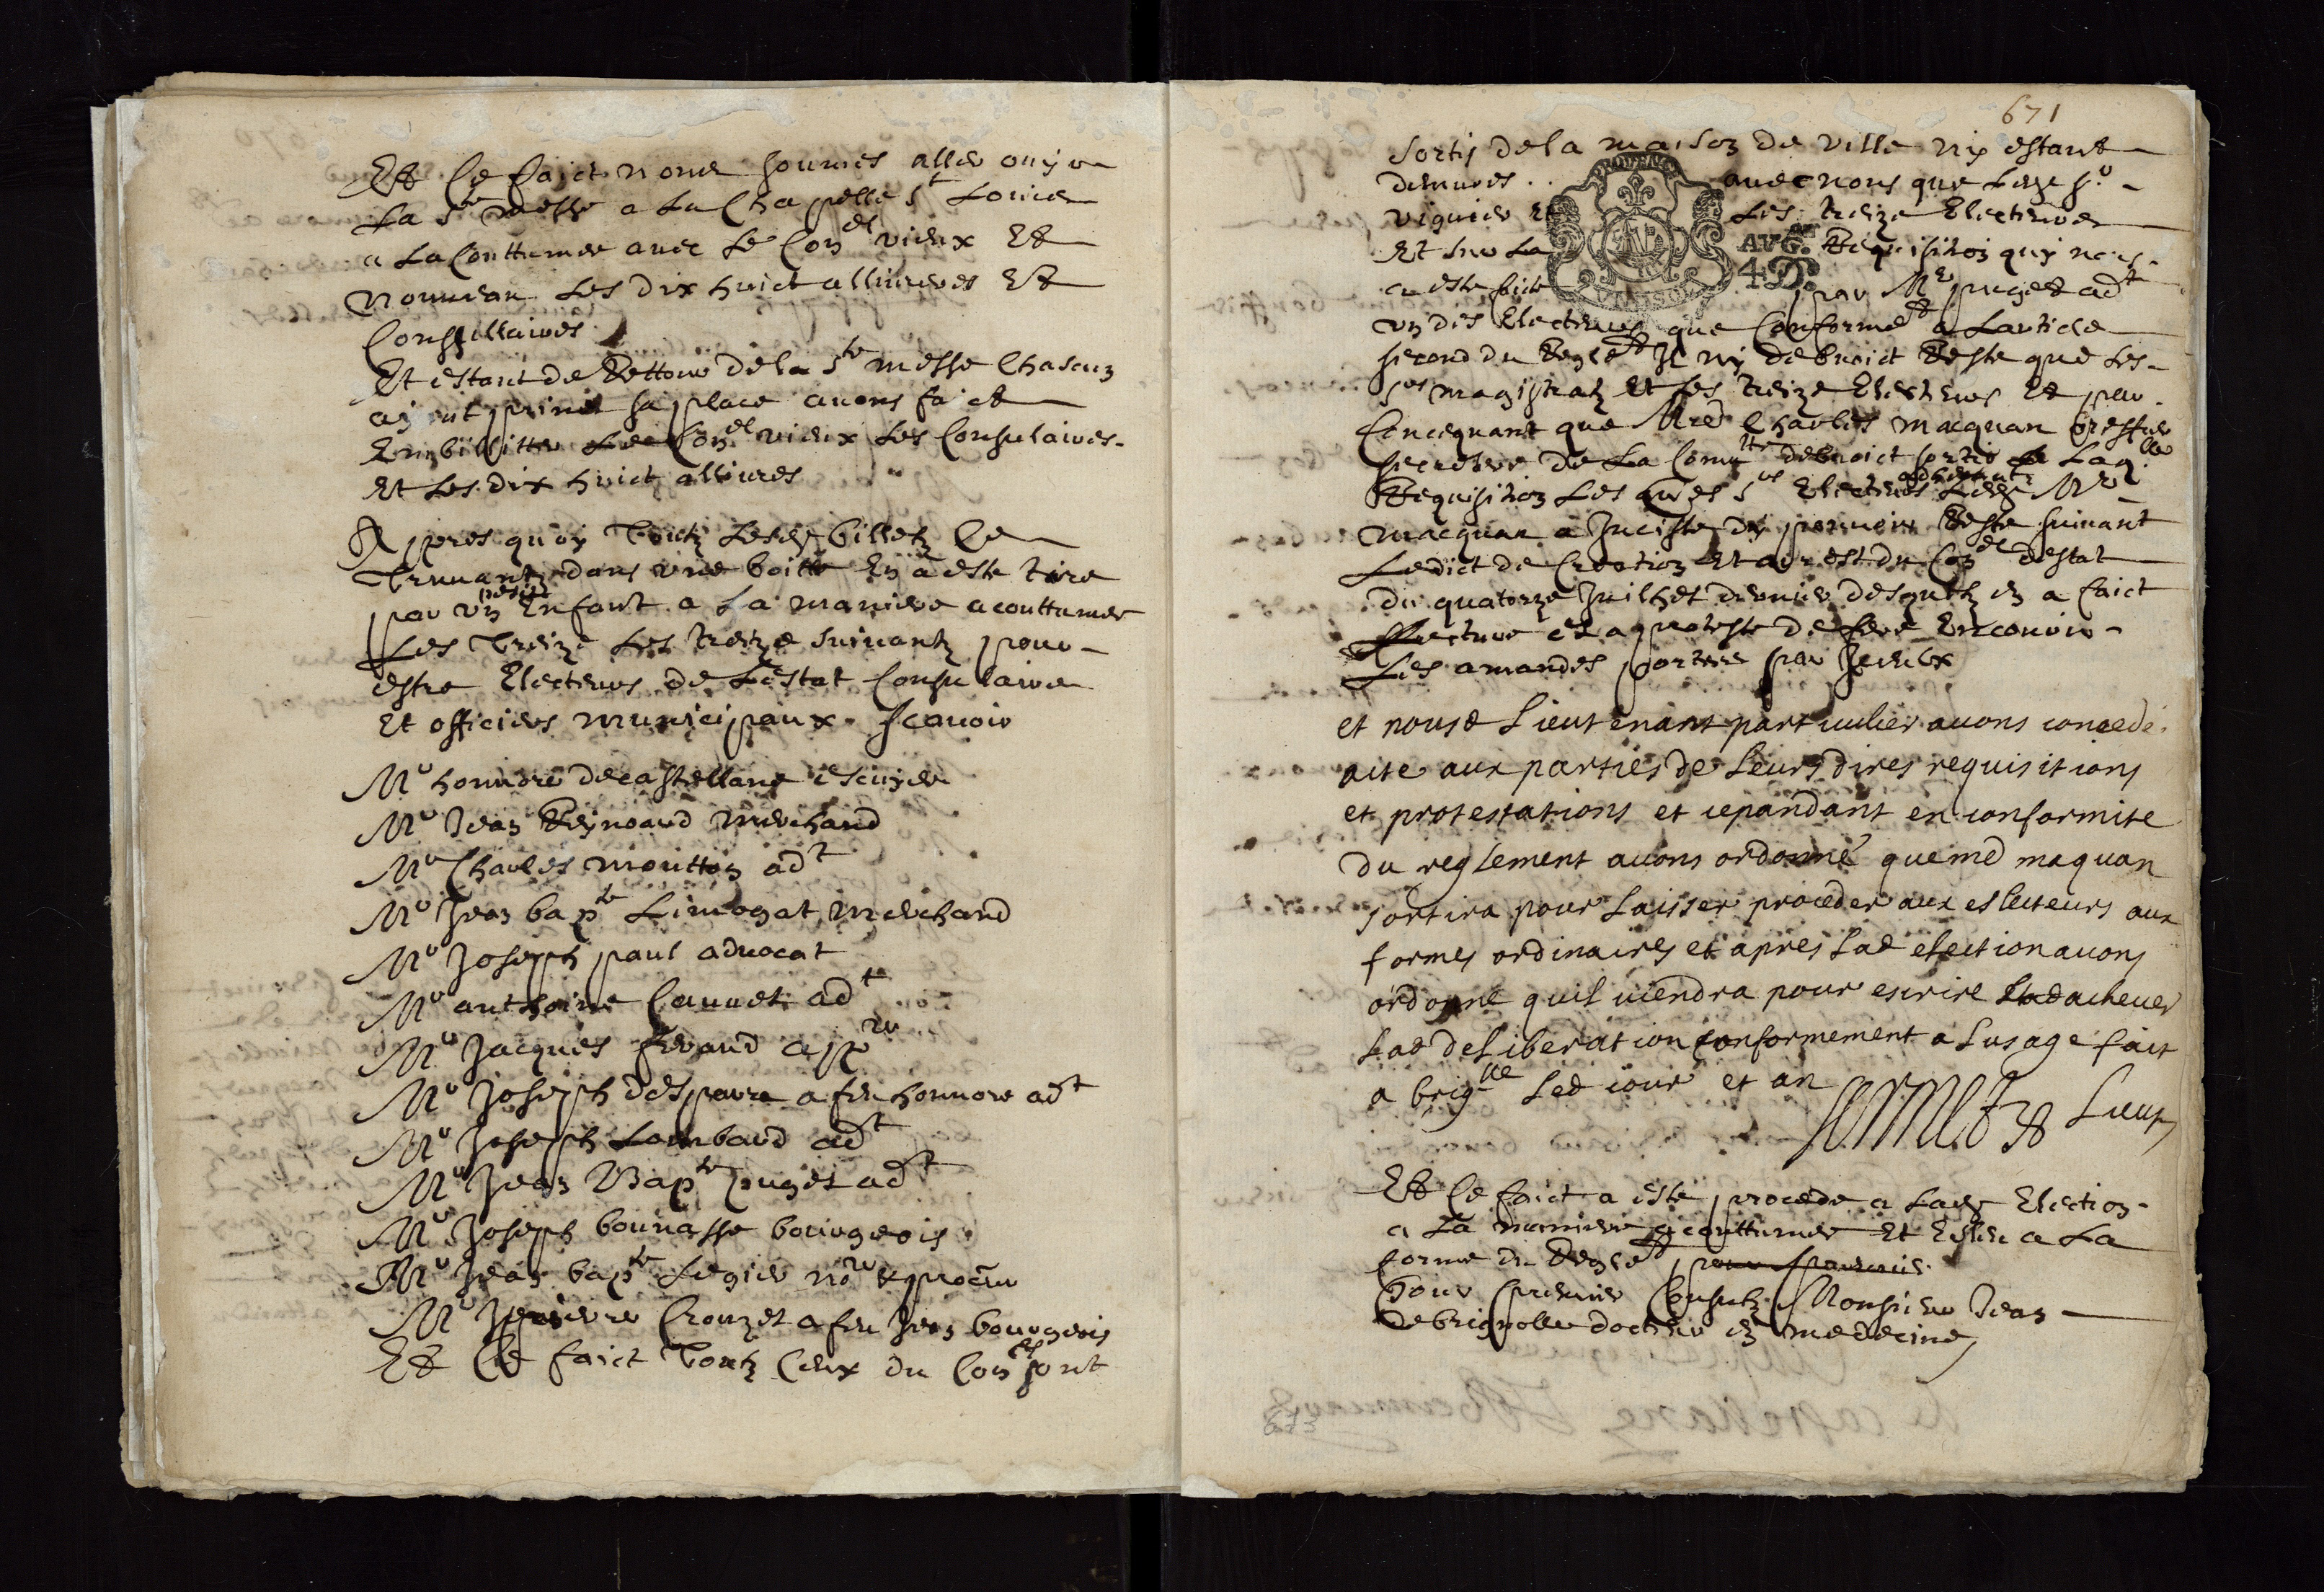 Et Ce faict nous sommes aller ouyr
La s.te messe a La Chapelle s.t Louis
a La Couttumee avec Le Con.el vieux Et
nouveau Les dix huict allivres Et
Conseillaires
Et estant de Rettour de la s.te messe Chascun
ayant prins sa place avons faict
Embilliter Les Con.el vieux Les Consulaires
Et Les dix huict allivres
Appres quoy Toutz Lesdz billetz Ce
Treuvantz dans une boitte En a este tire
par un petit Enfant a La maniere acouttumee
Les Treize Les treize suivantz pour
estre Electeurs de Lestat Consulaire
Et officiers municipaux Scavoir
M.e honnore de castellane escuyer
M.e Jean Reynoard marchand
M.e Charles moutton ad.t
M.e Jean bap.te Limogat marchand
M.e Joseph paul advocat
M.e anthoine Cauvet ad.t
M.e Jacques feraud ap.re
M.e Joseph desparra a feu honnore ad.t
M.e Joseph Lombard ad.t
M.e Jean Bap.te puget ad.t
M.e Joseph bounasse bourgeois
M.e Jean bap.te Legier no.re & procur
M.e pierre Crouzet a feu Jean bourgeois
Et Ce faict Toutz Ceux du Con.el sont
671
sortis de la maison de ville niy estant
demeures avec nous que Ledz s.r
viguier Et Les treize Electeurs
AVG.ON
4 D.
Et sur La Requisition quy nous
a este faicte par M.e puget ad.t
un des Electeurs que Conforme.t a Larticle
second du Regle.t Il niy debvoict Reste que Les
s.rs magistratz Et Les treize Electeurs Et par
Conceguant que M.e Charles macquan greffier
secretere de La Comu.te debvoict sortir a Laq.lle
Requisition Les autres s.rs Electeurs adherant Ledz M.e
macquan a Inciste dy pouvoir Reste suivant
Ledict de Creation Et arrest du Con.el destat
du quatorze Juilhet dernier desquelz en a faict
Lecture et a proteste de fere Encourir
Les amandes portees par Iceulx
et nousd Lieutenant particulier avons concede
acte aux parties de leurs dires requisitions
et protestations et cepandant en conformite
du reglement avons ordonné que med maquan
sortira pour laisser proceder aux eslecteurs aux
formes ordinaires et apres lad election avons
ordonné quil viendra pour escrire achever
lad deliberation conformement a lusage fait
a brig.lle led jour et an
Lieut
Et Ce faict a este procede a Ladz Election
a La maniere acouttumee Et Eslire a La
forme du Regle.t
Pour premier Consulz Monsieur Jean
de brignolle docteur en medecine
673